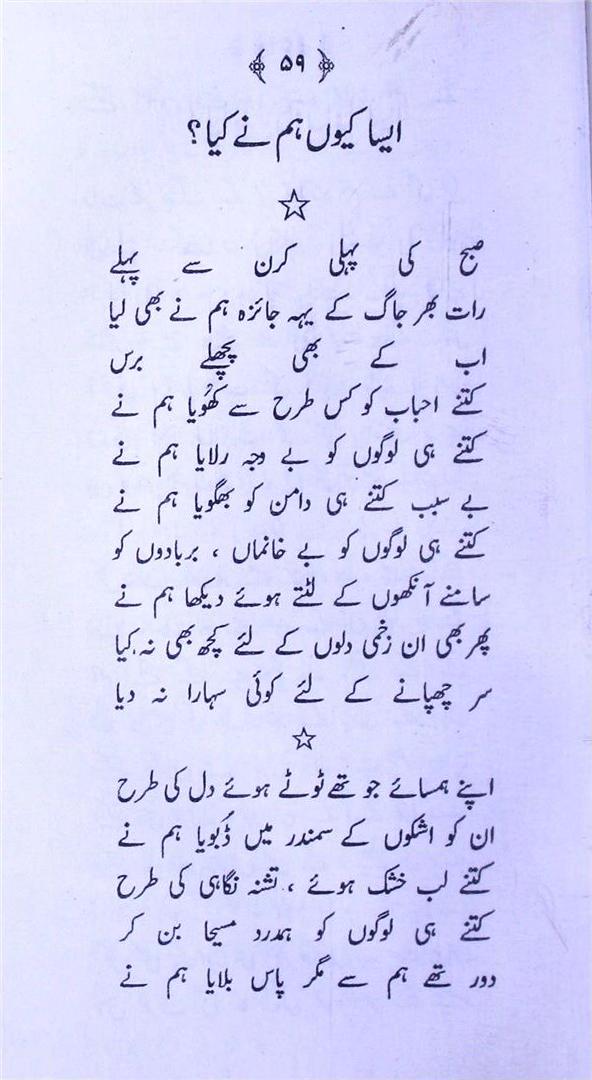 ۵۹
ایسا کیوں ہم نے کیا؟
صبح کی پہلی کرن سے پہلے
رات بھر جاگ کے یہہ جائزہ ہم نے بھی لیا
اب کے بھی پچھلے برس
کتنے احباب کو کس طرح سے کھُویا ہم نے
کتنے ہی لوگوں کو بے وجہ رلایا ہم نے
بے سبب کتنے ہی دامن کو بھگویا ہم نے
کتنے ہی لوگوں کو بے خانماں ، بربادوں کو
سامنے آنکھوں کے لٹتے ہوئے دیکھا ہم نے
پھر بھی ان زخمی دلوں کے لئے کچھ بھی نہ کیا
سر چھپانے کے لئے کوئی سہارا نہ دیا
اپنے ہمسائے جو تھے ٹوٹے ہوئے دل کی طرح
ان کو اشکوں کے سمندر میں ڈُبویا ہم نے
کتنے لب خشک ہوئے ، تشنہ نگاہی کی طرح
کتنے ہی لوگوں کو ہمدرد مسیحا بن کر
دور تھے ہم سے مگر پاس بلایا ہم نے